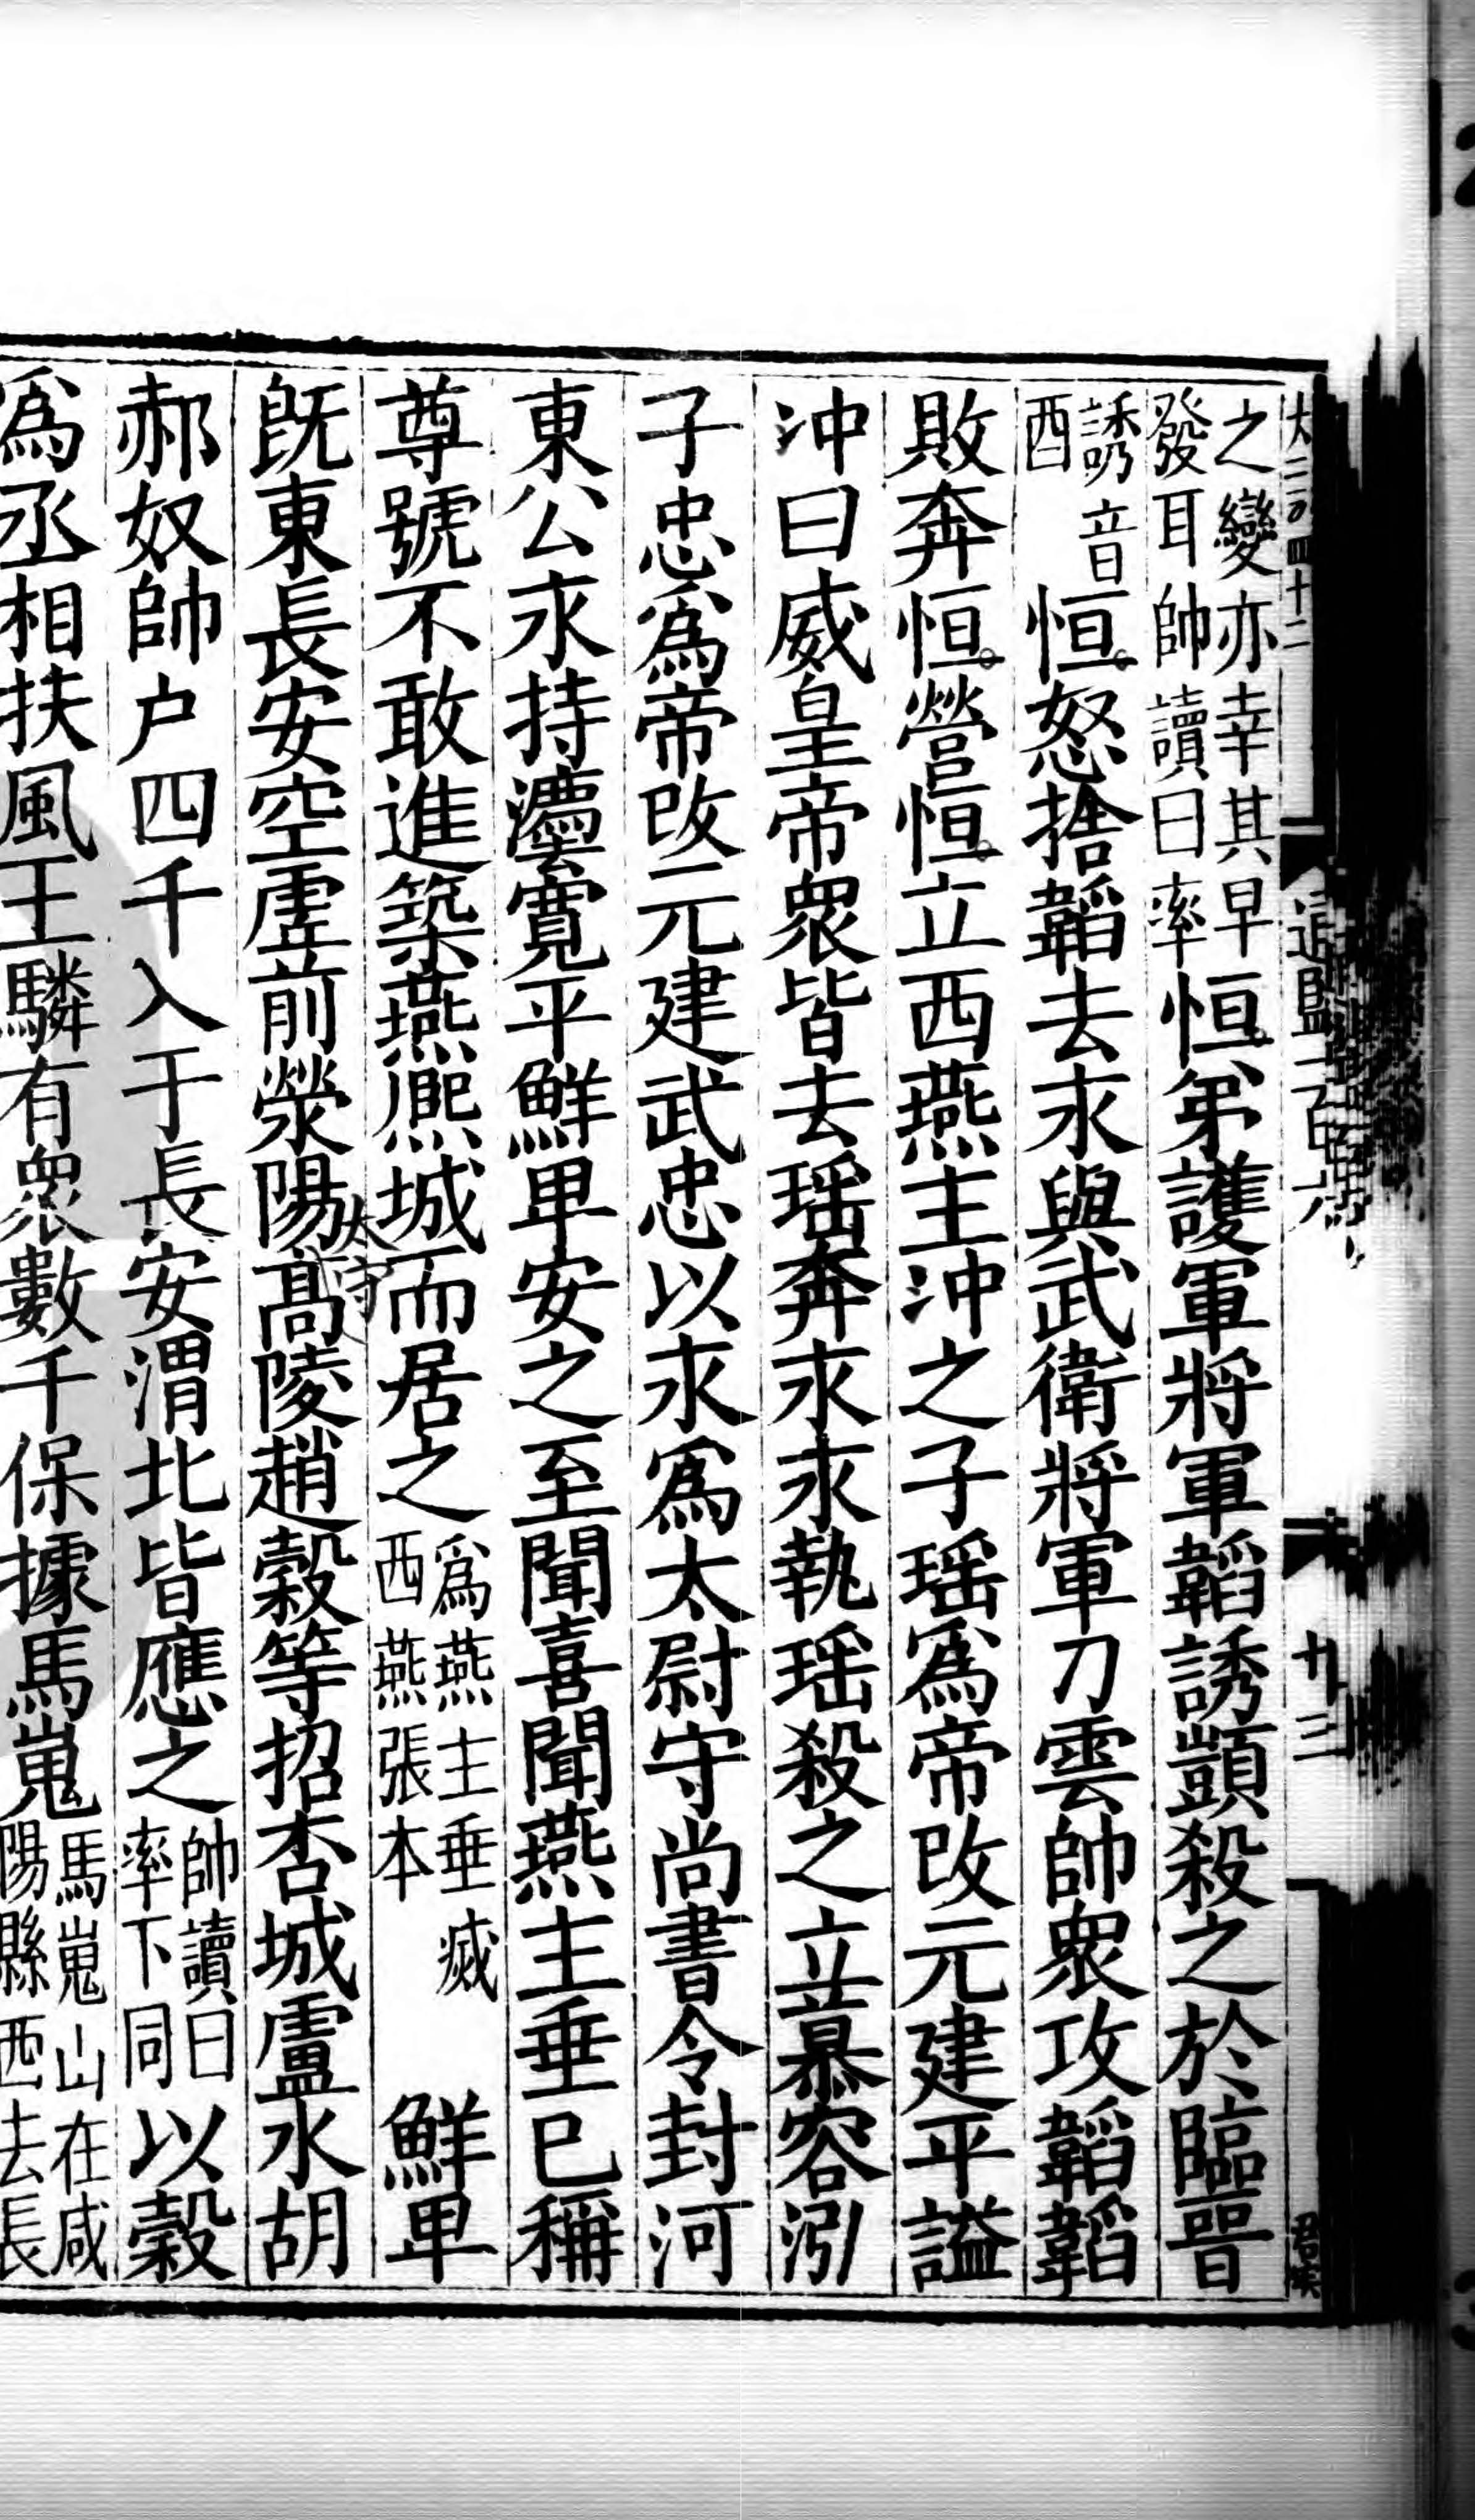 之變亦幸其早發耳帥讀曰率恒弟護軍將軍韜誘顗殺之於臨晉
誘音酉恒怒捨韜去永與武衛將軍刀雲帥衆攻韜韜
敗奔恒營恒立西燕主沖之子瑶爲帝改元建平謚
沖曰威皇帝衆皆去瑶奔永永執瑶殺之立慕容泓
子忠爲帝改元建武忠以永爲太尉守尚書令封河
東公永持灋寛平鮮卑安之至聞喜聞燕主垂已稱
尊號不敢進築燕熈城而居之爲燕主垂滅西燕張本鮮卑
旣東長安空虛前滎陽太守髙陵趙穀等招杏城盧水胡
郝奴帥户四千入于長安渭北皆應之帥讀曰率下同以穀
爲丞相扶風王驎有衆數千保據馬嵬馬嵬山在咸陽縣西去長